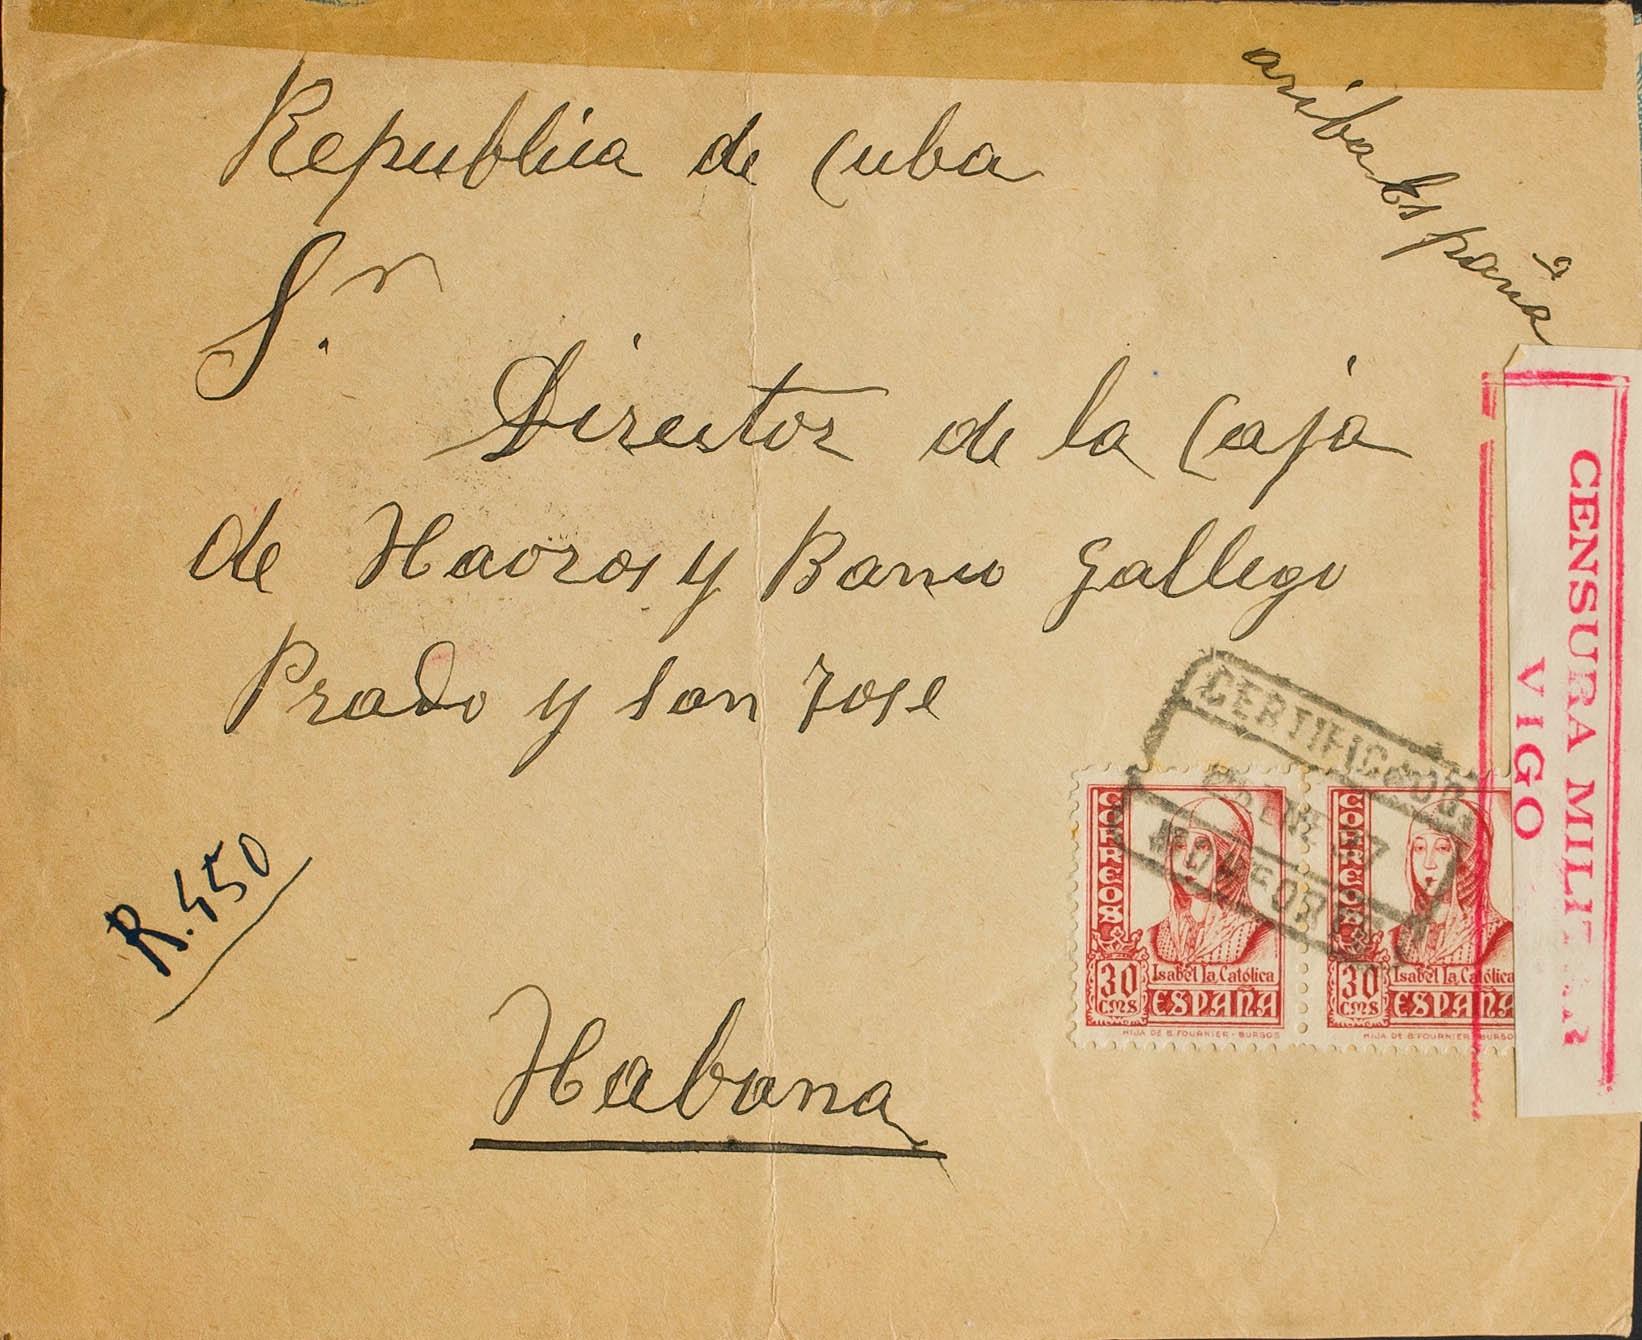 Republica de Cuba
ariba España
S.r
Director de la Caja
de Haoros y Banco gallego
Prado y san Jose
R. 450
Habana
CERTIFICADO
MONFORTE
CORREOS
30 CMS
Isabel la Católica
ESPAÑA
HIJA DE B. FOURNIER - BURGOS
CORREOS
30 CMS
Isabel la Católica
ESPAÑA
HIJA DE B. FOURNIER BURGO
CENSURA MILITAR
VIGO